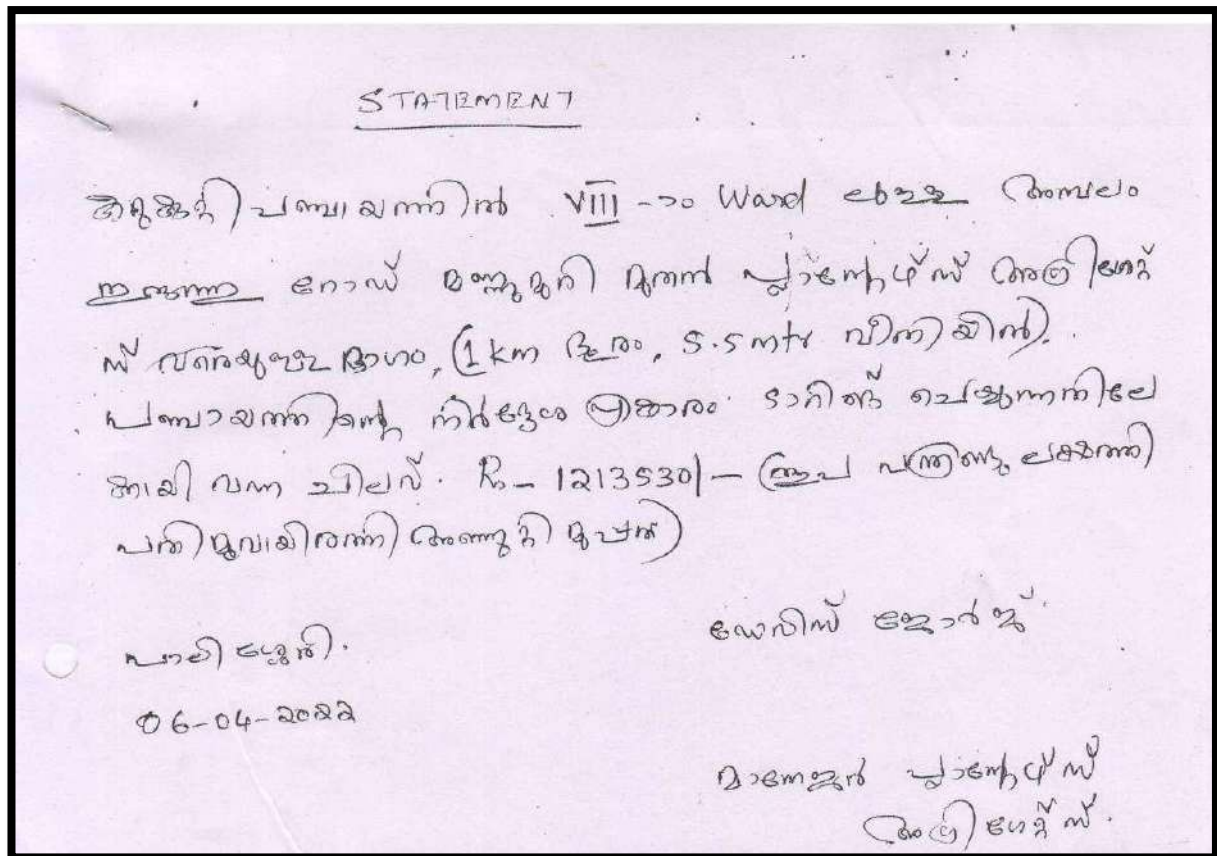 STATEMENT
കറുകുറ്റി പഞ്ചായത്തിൽ VIII -ാം Ward ലുള്ള അമ്പലം
റോഡ് മുതൽ പ്ലാന്റേഴ്സ് അഗ്രിഗേറ്റ്
സ് വരെയുള്ള ഭാഗം, (1 km ദൂരം, 5.5 mtr വീതിയിൽ).
പഞ്ചായത്തിന്റെ നിർദ്ദേശ പ്രകാരം ടാറിങ്ങ് ചെയ്യുന്നതിലേ
ക്കായി വന്ന ചിലവ്. Rs - 1213530/- (രൂപ പന്ത്രണ്ടു ലക്ഷത്തി
പതിമൂവായിരത്തി അഞ്ഞൂറ്റി മുപ്പത്)
ഡേവിസ് ജോർജ്ജ്.
പാലിശ്ശേരി.
06-04-2022
മാനേജർ പ്ലാന്റേഴ്സ്
അഗ്രിഗേറ്റ്സ്.